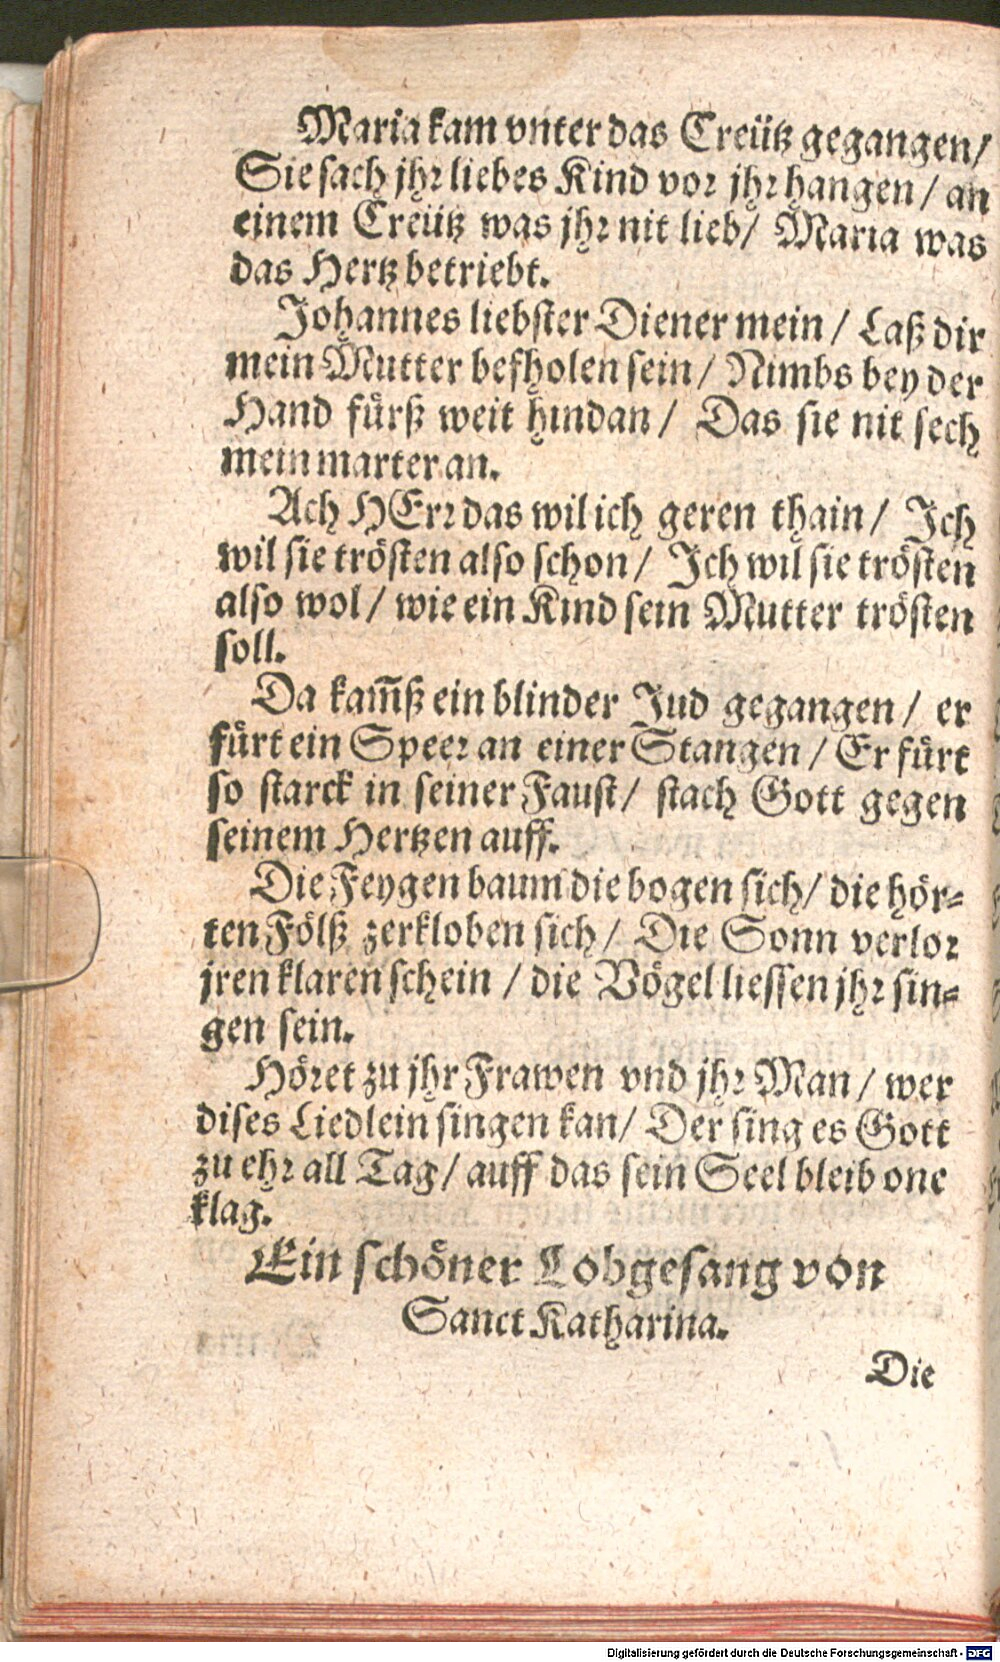 Maria kam vnter das Creütz gegangen/
Sie sach jhr liebes Kind vor jhr hangen / an
einem Creütz was jhr nit lieb/ Maria was
das Hertz betriebt.
Johannes liebster Diener mein / Laß dir
mein Mutter befholen sein / Nimbs bey der
Hand fürß weit hindan / Das sie nit sech
mein marter an.
Ach HErr das wil ich geren thain / Ich
wil sie trösten also schon / Ich wil sie trösten
also wol / wie ein Kind sein Mutter trösten
soll.
Da kam̃ß ein blinder Jud gegangen / er
fürt ein Speer an einer Stangen / Er fürt
so starck in seiner Faust/ stach Gott gegen
seinem Hertzen auff.
Die Feygenbaum die bogen sich/ die hör-
ten Fölß zerkloben sich / Die Sonn verlor
jren klaren schein / die Vögel liessen jhr sin-
gen sein.
Höret zu jhr Frawen vnd jhr Man / wer
dises Liedlein singen kan/ Der sing es Gott
zu ehr all Tag/ auff das sein Seel bleib one
klag.
Ein schöner Lobgesang von
Sanct Katharina.
Die
Digitalisierung gefördert durch die Deutsche Forschungsgemeinschaft - DFG